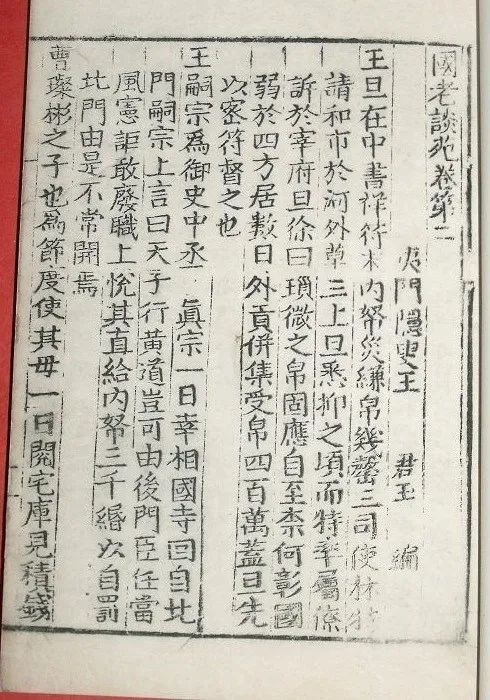 國老談苑卷第二
夷門隱叟王 君玉 編
王旦在中書祥符末內帑災縑帛幾罄三司使林特
請和市於河外草三上旦悉抑之頃而特率屬僚
訴於宰府旦徐曰瑣微之帛固應自至柰何彰國
弱於四方居數日外貢併集受帛四百萬蓋旦先
以密符督之也
王嗣宗爲御史中丞 眞宗一日幸相國寺回自北
門嗣宗上言曰天子行黃道豈可由後門臣任當
風憲詎敢廢職上悅其直給內帑三千緡以自罰
北門由是不常開焉
曹璨彬之子也為節度使其母一日閱宅庫見積錢